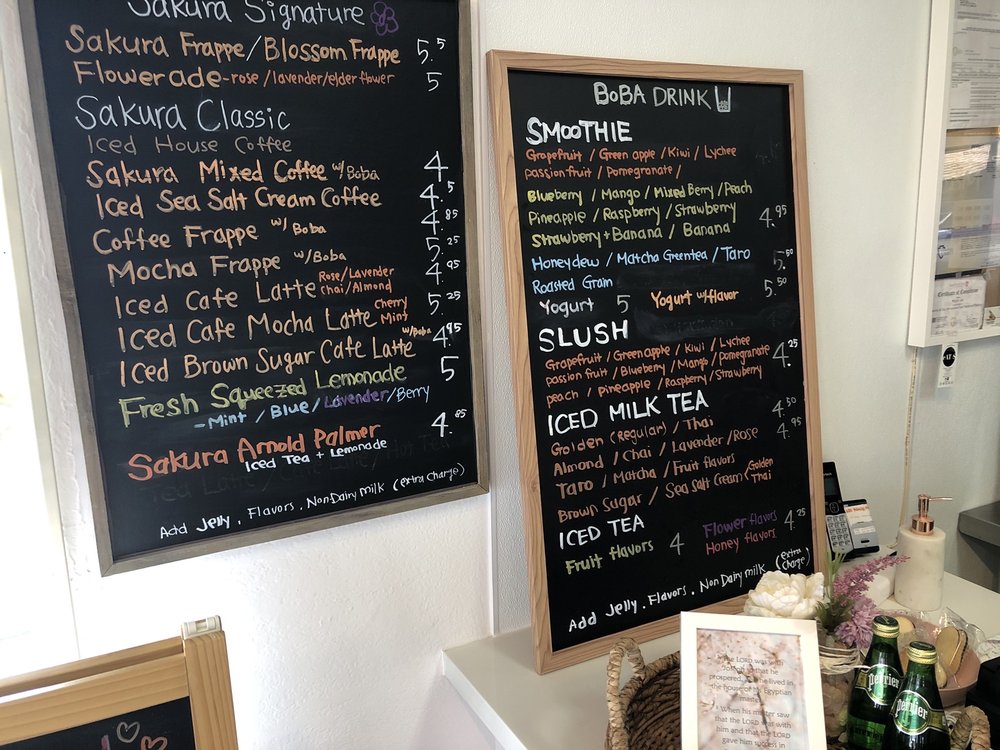 Sakura Signature
Sakura Frappe/Blossom Frappe 5.5
Flowerade-rose/lavender/elderflower 5
Sakura Classic
Iced House Coffee
Sakura Mixed Coffee w/Boba 4.
Iced Sea Salt Cream Coffee 4.5
Coffee Frappe w/Boba 4.85
Mocha Frappe w/Boba 5.25
Iced Cafe Latte Rose/Lavender 4.95
Chai/Almond
Iced Cafe Mocha Latte Cherry 5.25
Mint
Iced Brown Sugar Cafe Latte w/Boba 4.95
Fresh Squeezed Lemonade 5
-Mint/Blue/Lavender/Berry
Sakura Arnold Palmer 4.85
Iced Tea + Lemonade
Add Jelly, Flavors, NonDairy milk (extra charge)
BOBA DRINK
SMOOTHIE
Grapefruit / Green apple / Kiwi / Lychee
passion fruit / Pomegranate /
Blueberry / Mango / Mixed Berry / Peach
Pineapple / Raspberry / Strawberry 4.95
Strawberry + Banana / Banana
Honeydew / Matcha Greentea / Taro 5.50
Roasted Grain
Yogurt 5 Yogurt w/flavor 5.50
SLUSH
Grapefruit / Green apple / Kiwi / Lychee
passion fruit / Blueberry / Mango / Pomegranate 4.25
peach / pineapple / Raspberry / Strawberry
ICED MILK TEA
Golden (Regular) / Thai 4.50
Almond / Chai / Lavender / Rose 4.95
Taro / Matcha / Fruit flavors
Brown Sugar / Sea Salt Cream Golden
Thai
ICED TEA
Fruit flavors 4 Flower flavors 4.25
Honey flavors
Add Jelly, Flavors, NonDairy milk (extra charge)
The LORD was with
Joseph so that he
prospered, and he lived in
the house of his Egyptian
master.
When his master saw
that the LORD was with
him and that the LORD
gave him success in
Perrier
Perrier